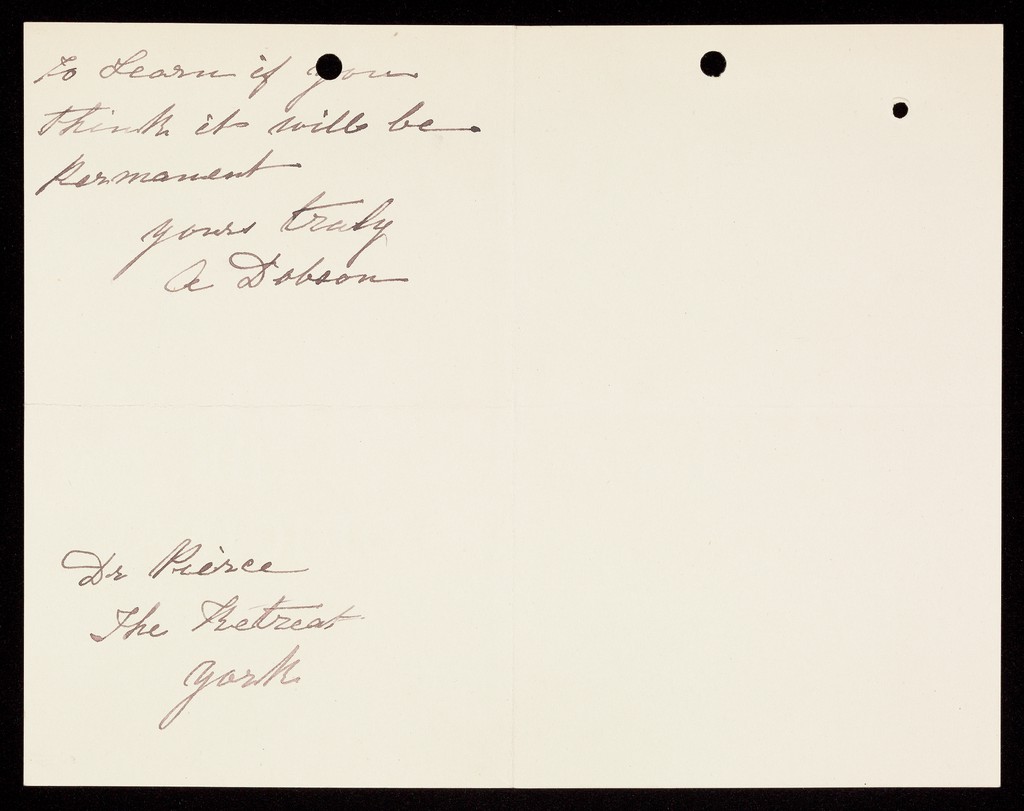 to Learn if you
think it will be
permanent
yours truly
A Dobson
Dr Pierce
The Retreat
York